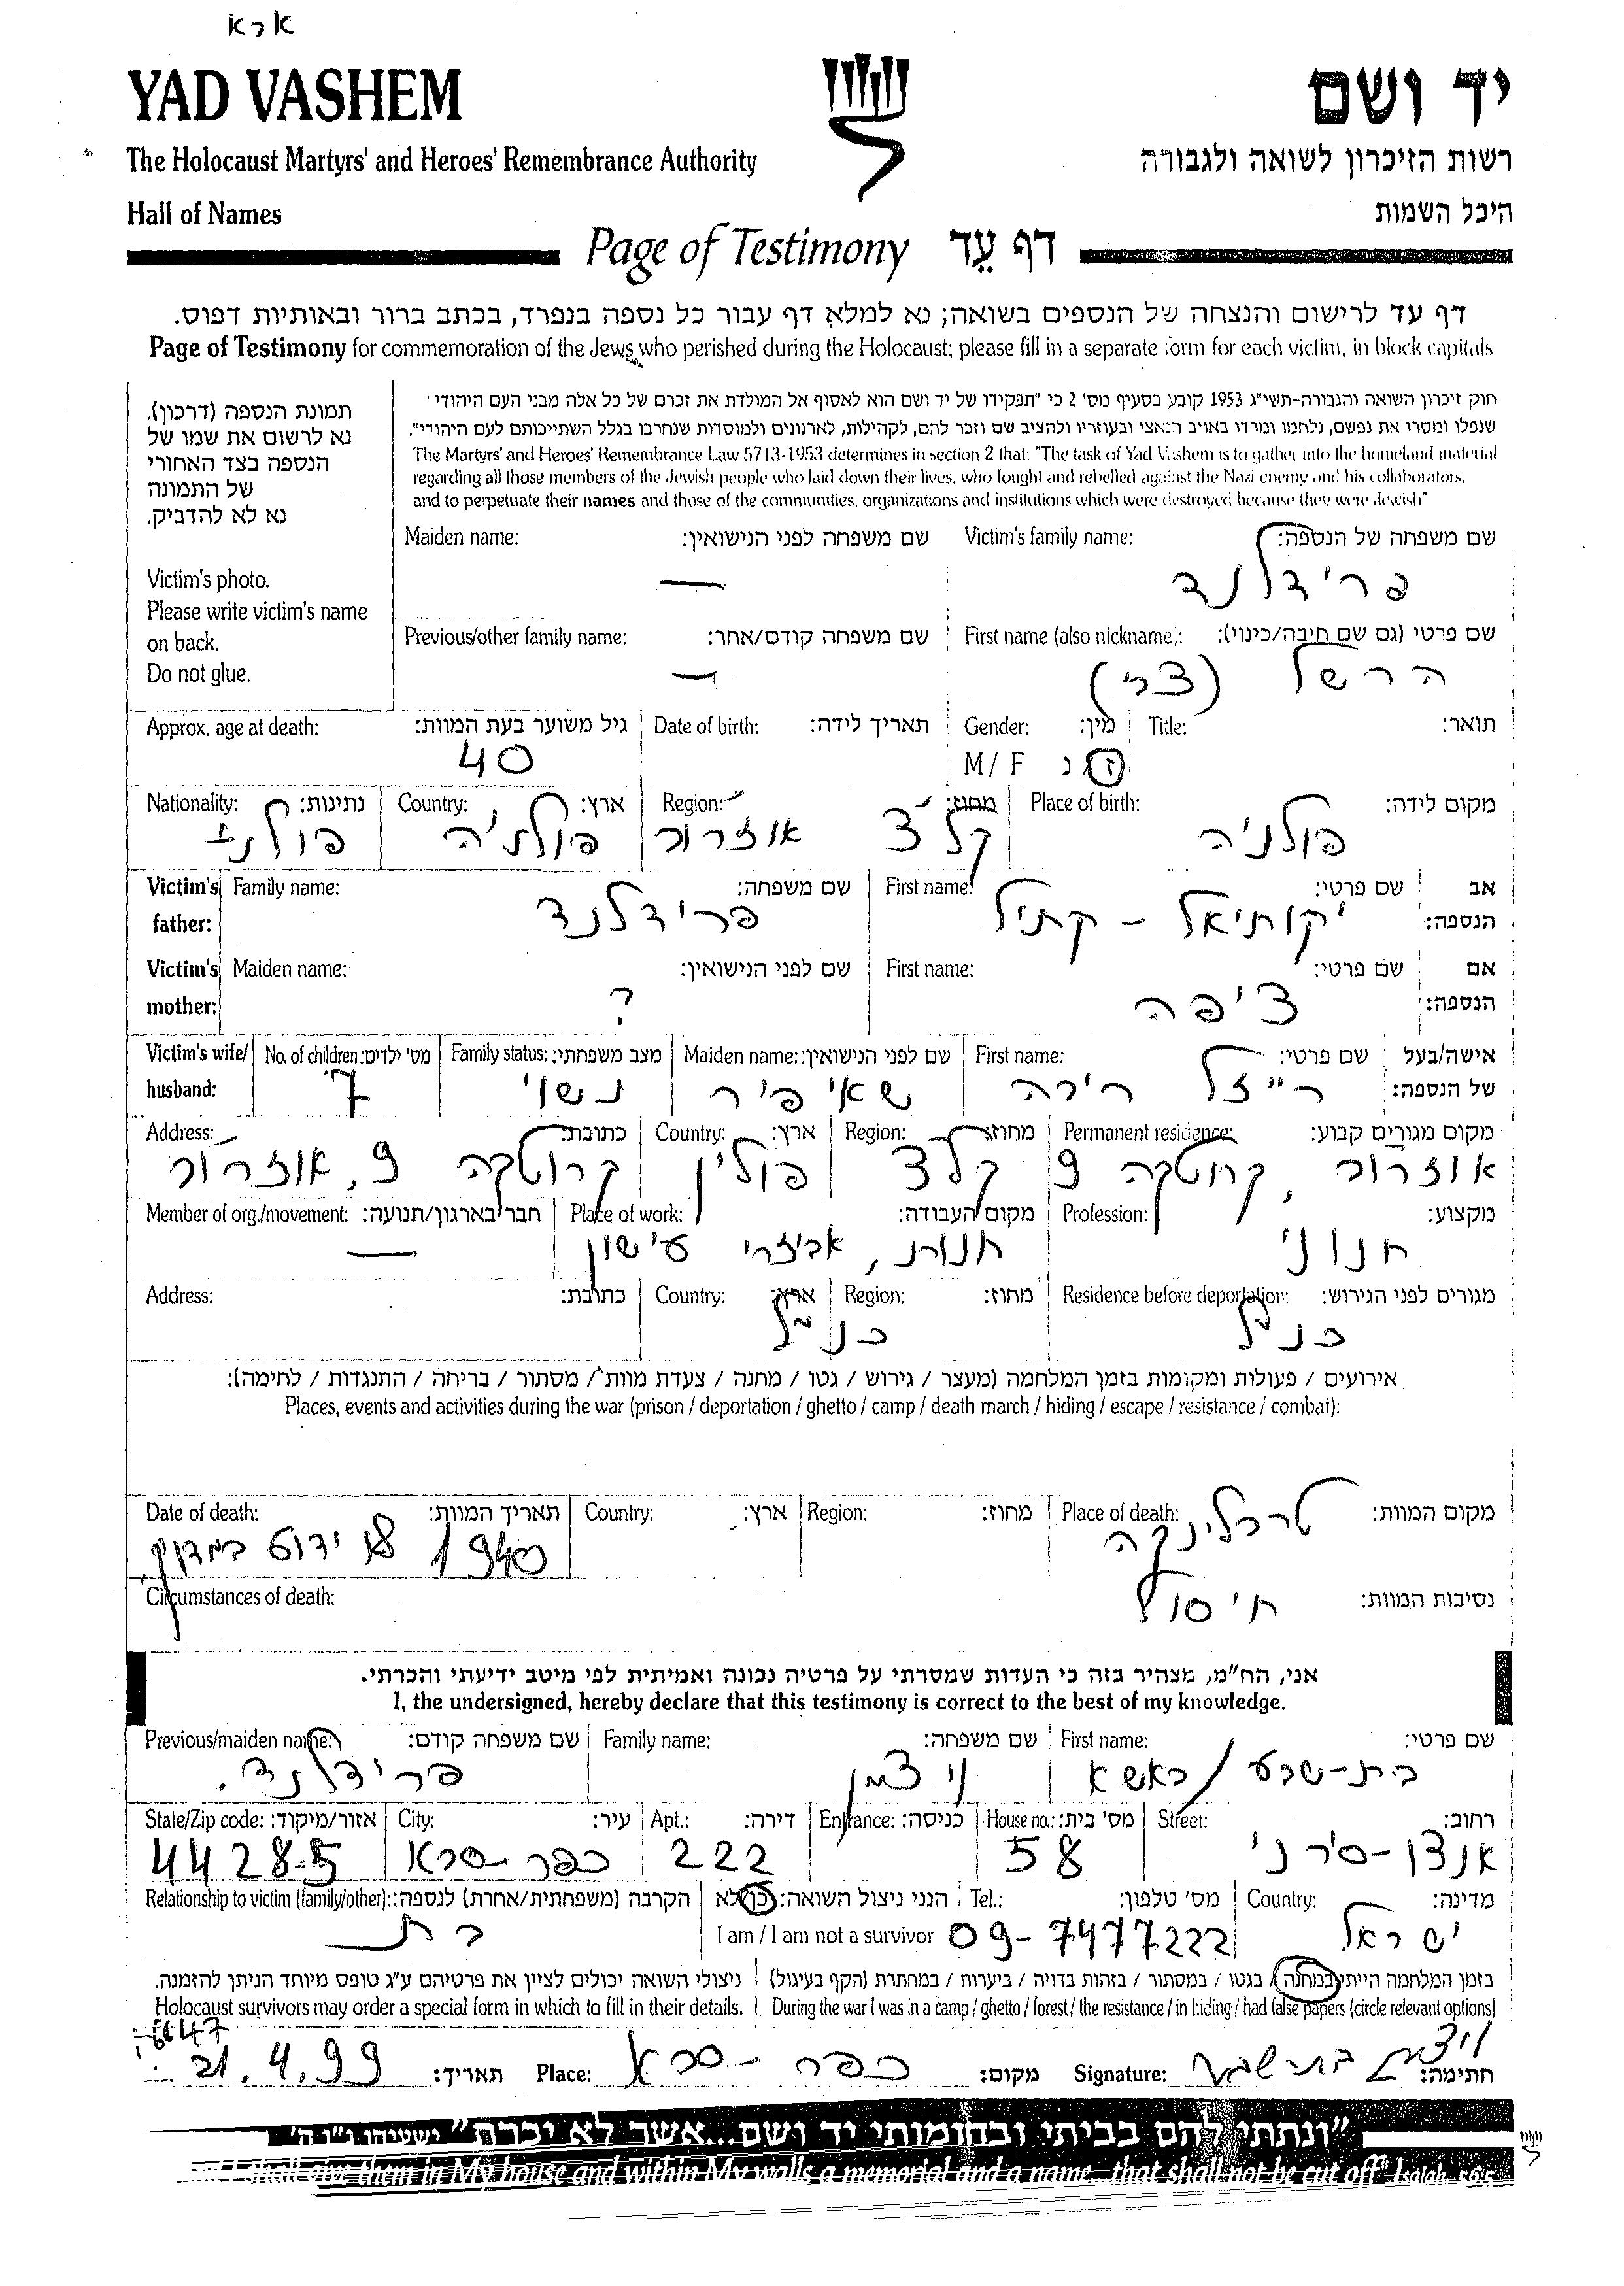 ארא
YAD VASHEM יד ושם
The Holocaust Martyrs' and Heroes' Remembrance Authority רשות הזיכרון לשואה ולגבורה
Hall of Names היכל השמות
Page of Testimony דף עֵד
דף עד לרישום והנצחה של הנספים בשואה; נא למלא דף עבור כל נספה בנפרד, בכתב ברור ובאותיות דפוס.
Page of Testimony for commemoration of the Jews who perished during the Holocaust; please fill in a separate form for each victim, in block capitals
תמונת הנספה (דרכון).
נא לרשום את שמו של
הנספה בצד האחורי
של התמונה
נא לא להדביק.
Victim's photo.
Please write victim's name
on back.
Do not glue.
חוק זיכרון השואה והגבורה-תשי"ג 1953 קובע בסעיף מס' 2 כי "תפקידו של יד ושם הוא לאסוף אל המולדת את זכרם של כל אלה מבני העם היהודי
שנפלו ומסרו את נפשם, נלחמו ומרדו באויב הנאצי ובעוזריו ולהציב שם וזכר להם, לקהילות, לארגונים ולמוסדות שנחרבו בגלל השתייכותם לעם היהודי".
The Martyrs' and Heroes' Remembrance Law 5713-1953 determines in section 2 that: "The task of Yad Vashem is to gather into the homeland material
regarding all those members of the Jewish people who laid down their lives, who fought and rebelled against the Nazi enemy and his collaborators,
and to perpetuate their names and those of the communities, organizations and institutions which were destroyed because they were Jewish"
שם משפחה של הנספה: Victim's family name: שם משפחה לפני הנישואין: Maiden name:
פרידלנד —
שם פרטי (גם שם חיבה/כינוי): First name (also nickname): שם משפחה קודם/אחר: Previous/other family name:
הרשל (צבי) —
תואר: Title: מין: Gender: תאריך לידה: Date of birth: גיל משוער בעת המוות: Approx. age at death:
ז/נ M/ F 40
מקום לידה: Place of birth: מחוז: Region: ארץ: Country: נתינות: Nationality:
פולניה קלצ אוזרוב פולניה פולני
אב שם פרטי: First name: שם משפחה: Family name: Victim's
הנספה: יקותיאל - קתיל פרידלנד father:
אם שם פרטי: First name: שם לפני הנישואין: Maiden name: Victim's
הנספה: ציפה ? mother:
אישה/בעל שם פרטי: First name: שם לפני הנישואין: Maiden name: מצב משפחתי: Family status: מס' ילדים: No. of children: Victim's wife/
של הנספה: רייזל שאפיר נשוי 7 husband:
מקום מגורים קבוע: Permanent residence: מחוז: Region: ארץ: Country: כתובת: Address:
אוזרוב, קרוטקה 9 קלצ פולין קרוטקה 9, אוזרוב
מקצוע: Profession: מקום העבודה: Place of work: חבר בארגון/תנועה: Member of org./movement:
חנוני חנות, אביזרי עישון —
מגורים לפני הגירוש: Residence before deportation: מחוז: Region: ארץ: Country: כתובת: Address:
כנ"ל כנ"ל
אירועים / פעולות ומקומות בזמן המלחמה (מעצר / גירוש / גטו / מחנה / צעדת מוות / מסתור / בריחה / התנגדות / לחימה):
Places, events and activities during the war (prison / deportation / ghetto / camp / death march / hiding / escape / resistance / combat):
מקום המוות: Place of death: מחוז: Region: ארץ: Country: תאריך המוות: Date of death:
טרבלינקה 1940 לא ידוע במדויק
נסיבות המוות: חיסול Circumstances of death:
אני, הח"מ, מצהיר בזה כי העדות שמסרתי על פרטיה נכונה ואמיתית לפי מיטב ידיעתי והכרתי.
I, the undersigned, hereby declare that this testimony is correct to the best of my knowledge.
שם פרטי: First name: שם משפחה: Family name: שם משפחה קודם: Previous/maiden name:
בת-שבע / באשא ויצמן פרידלנד.
רחוב: Street: מס' בית: House no.: כניסה: Entrance: דירה: Apt.: עיר: City: אזור/מיקוד: State/Zip code:
אנצו-סירני 58 222 כפר-סבא 44285
מדינה: Country: מס' טלפון: Tel.: הנני ניצול השואה: כן/לא הקרבה (משפחתית/אחרת) לנספה: Relationship to victim (family/other):
ישראל 09-7477222 I am / I am not a survivor בת
בזמן המלחמה הייתי במחנה / בגטו / במסתור / ביערות / בזהות בדויה / במחתרת (הקף בעיגול) ניצולי השואה יכולים לציין את פרטיהם ע"ג טופס מיוחד הניתן להזמנה.
During the war I was in a camp / ghetto / forest / the resistance / in hiding / had false papers (circle relevant options) Holocaust survivors may order a special form in which to fill in their details.
חתימה: ויצמן בת-שבע Signature: מקום: כפר-סבא Place: תאריך: 21.4.99
"ונתתי להם בביתי ובחומותי יד ושם...אשר לא יכרת" ישעיהו נ"ו ה'
I shall give them in My house and within My walls a memorial and a name...that shall not be cut off" Isaiah 56:5